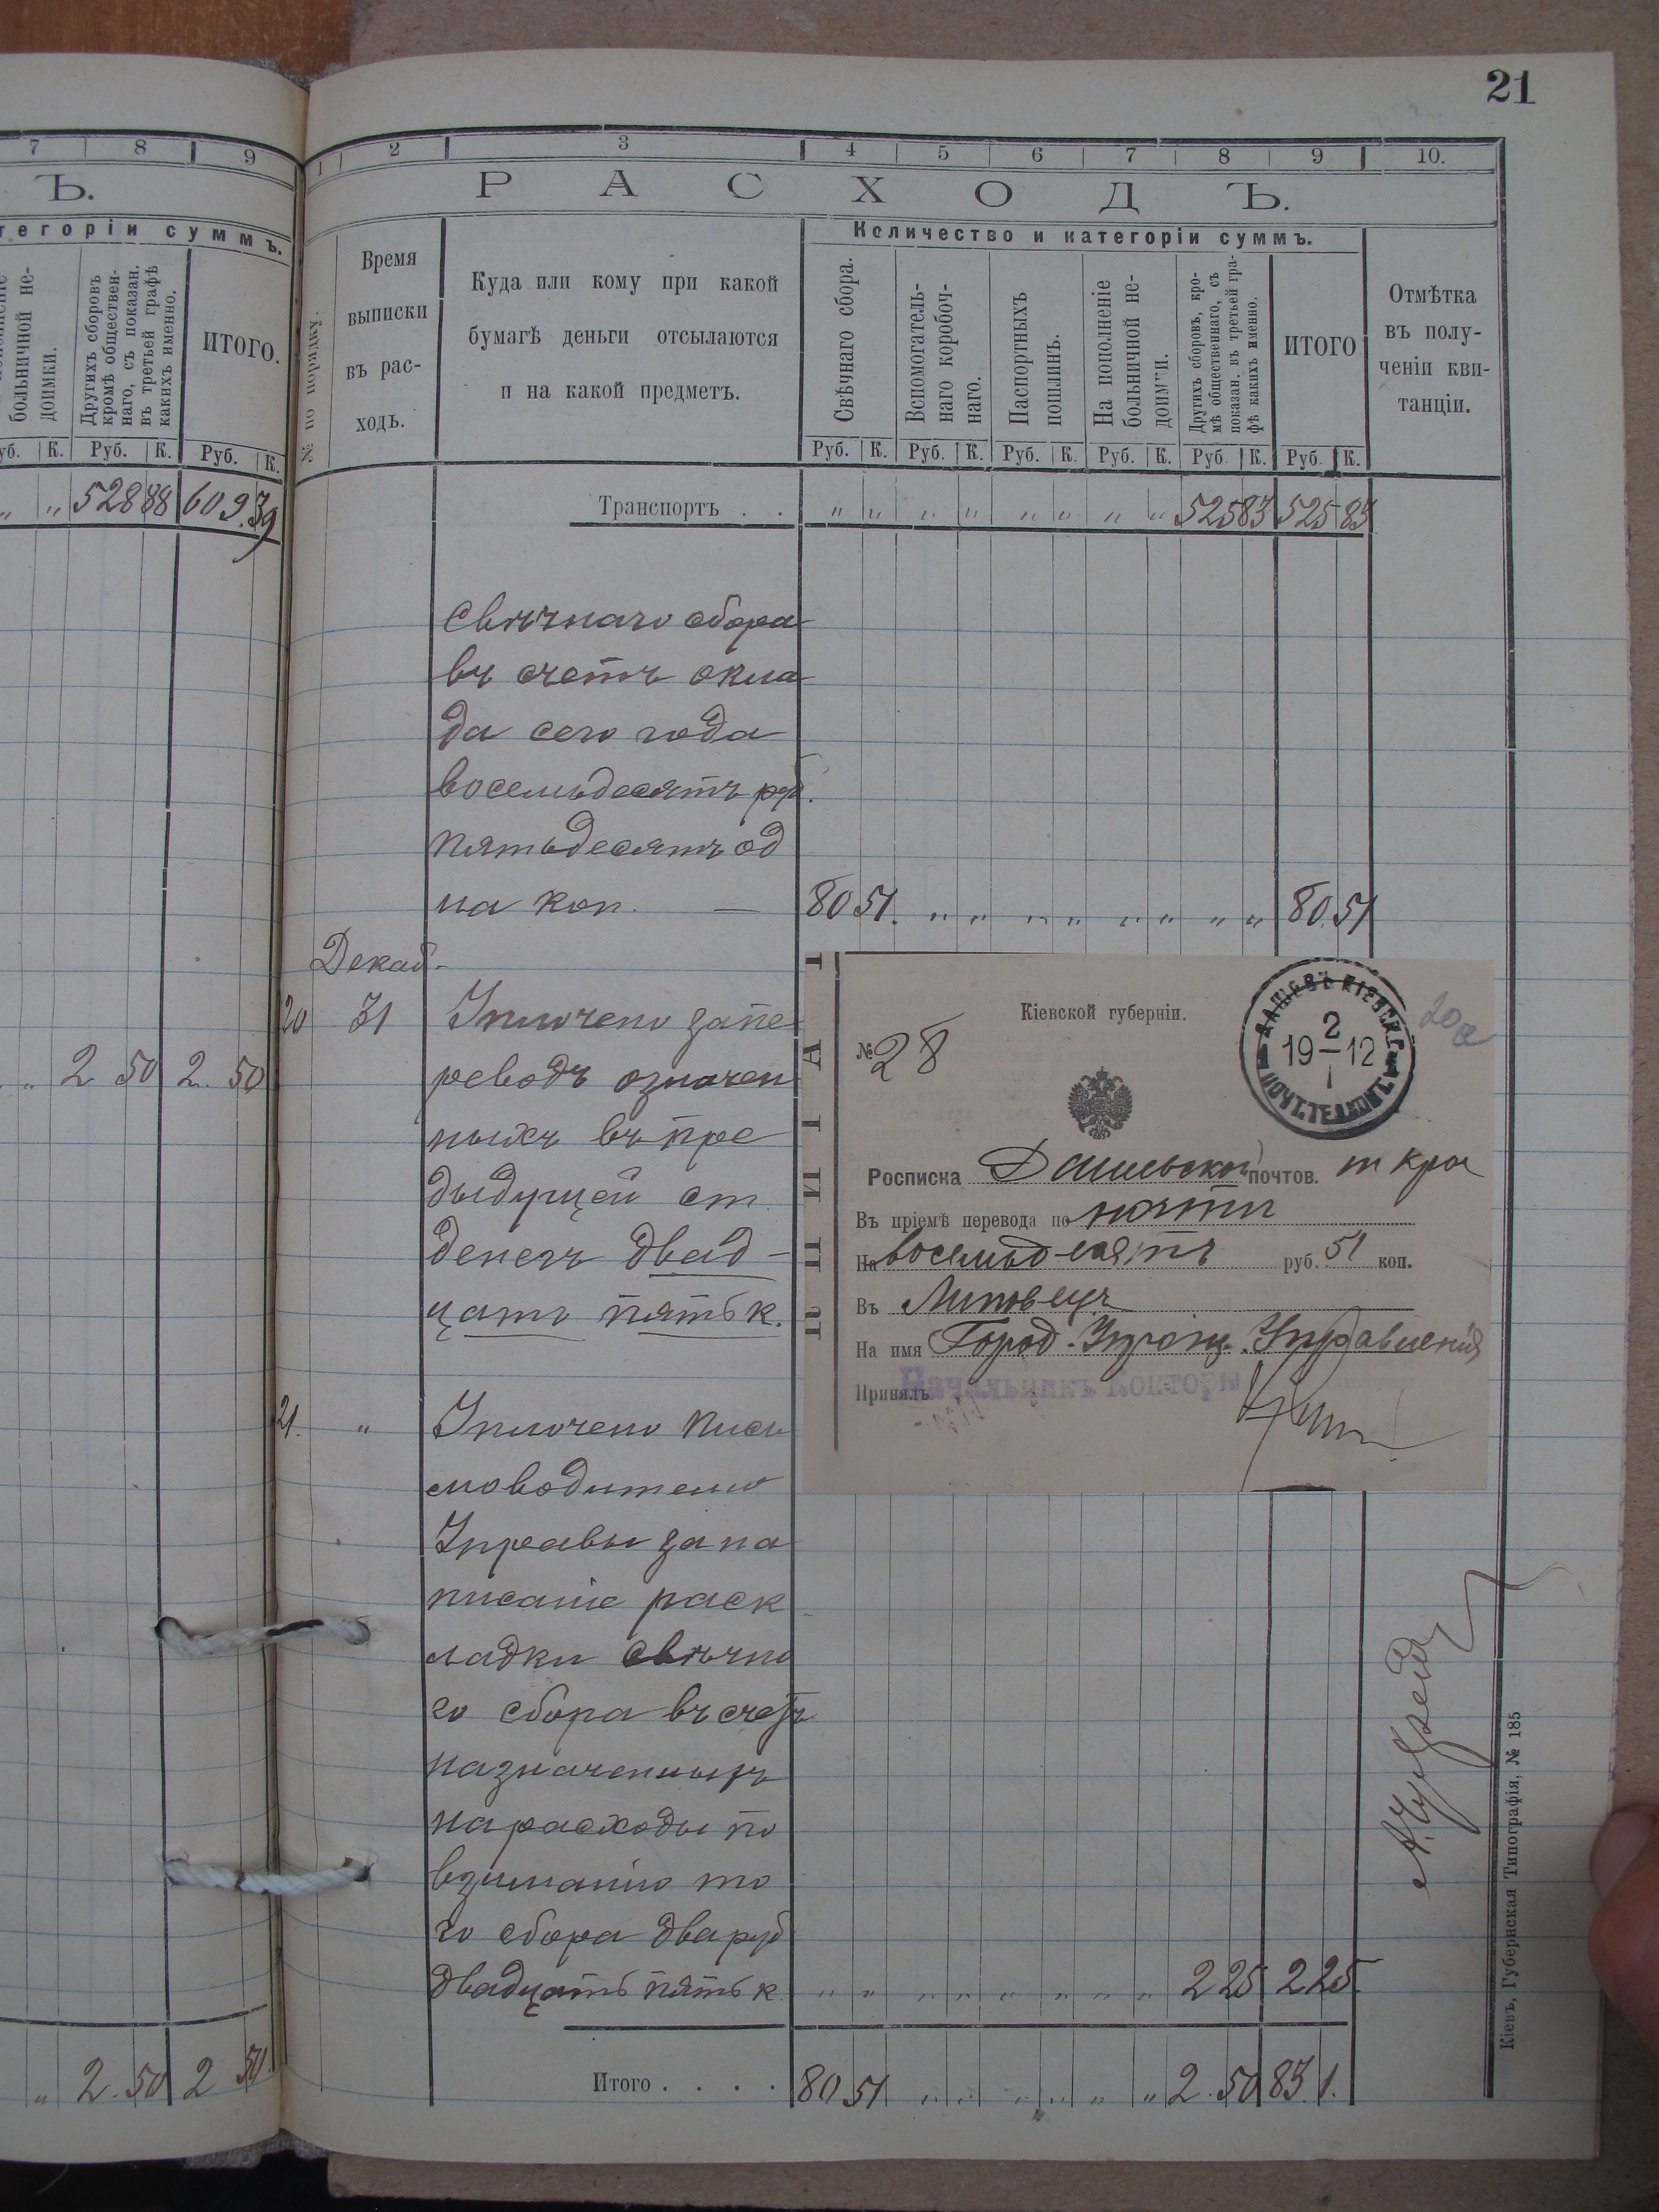 21
7 8 9
Ъ.
тегоріи суммъ.
больничной не-
доимки.
Другихъ сборовъ
кромѣ обществен-
наго, съ показан.
въ третьей графѣ
какихъ именно.
ИТОГО.
уб. К. Руб. К. Руб. К.
„ „ 528 88 609. 39
„ 2 50 2. 50
„ 2. 50 2 50.
1 2 3 4 5 6 7 8 9 10.
РАСХОДЪ.
№ по порядку.
Время
выписки
въ рас-
ходъ.
Куда или кому при какой
бумагѣ деньги отсылаются
и на какой предметъ.
Количество и категоріи суммъ.
Свѣчнаго сбора.
Вспомогатель-
наго коробоч-
наго.
Паспортныхъ
пошлинъ.
На пополненіе
больничной не-
доимки.
Другихъ сборовъ, кро-
мѣ общественнаго, съ
показан. въ третьей гра-
фѣ какихъ именно.
ИТОГО
Отмѣтка
въ полу-
ченіи кви-
танціи.
Руб. К. Руб. К. Руб. К. Руб. К. Руб. К. Руб. К.
Транспортъ . . „ „ „ „ „ „ „ „ 525 83 525 83
Свѣчнаго сбора
въ счетъ окла
да сего года
восемьдесятъ руб.
пятьдесятъ од
на коп. — 80 51. „ „ „ „ „ „ „ „ 80. 51
Декаб.
20 31 Уплочено за пе
реводъ означен
ныхъ въ пре
дыдущей ст.
денегъ двад-
цать пять к.
21. „ Уплочено пись
моводителю
Управы за на
писаніе раск
ладки свѣчно
го сбора въ счетъ
назначенныхъ
на расходы по
взиманію то
го сбора два руб
двадцать пять к „ „ „ „ „ „ „ „ 2 25 2 25.
Итого . . . . 80 51 „ „ „ „ „ „ 2. 50 83. 1.
Кіевской губерніи.
№ 28
ДАШЕВЪ КІЕВСК. Г.
2
19–12
1
ПОЧТ. ТЕЛ. КОНТ.
Росписка Дашевской почтов.
Въ пріемѣ перевода по почти
На восемьдесятъ руб. 51 коп.
Въ Липовецъ
На имя Город. Упрощ. Управленія
Принялъ Начальникъ Конторы
Кіевъ, Губернская Типографія, № 185